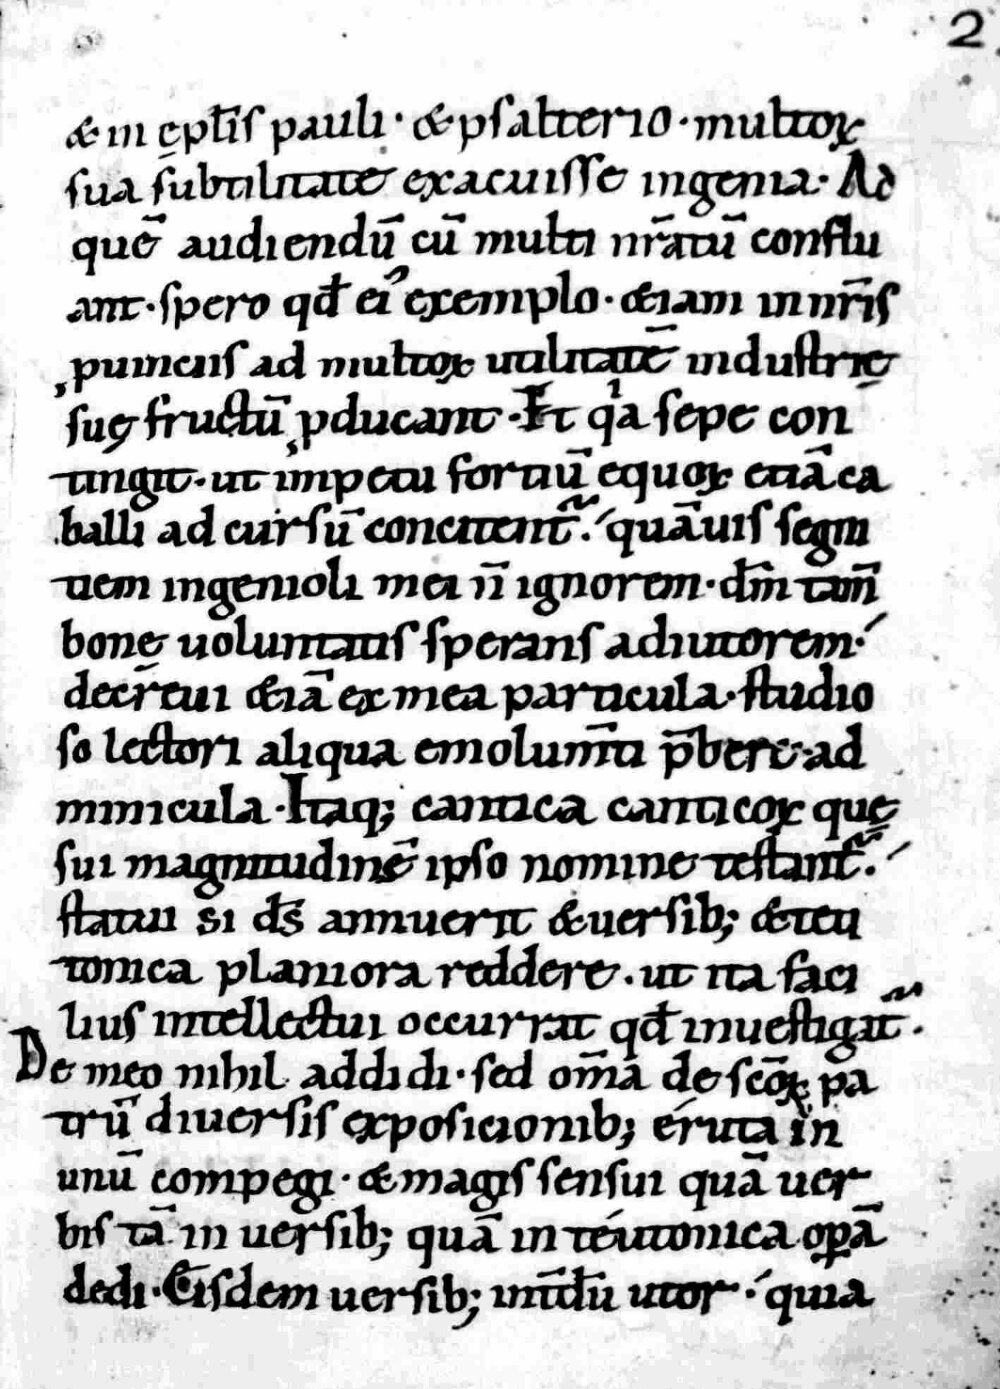 2
& in ep̄tis pauli · & psalterio · multoꝝ
sua subtilitate exacuisse ingenia · Ad
quē audiendū cū multi nr̄atū conflu
ant · spero qđ ei᾿ exemplo · &iam in nr̄is
ꝓuinciis ad multoꝝ utilitatē industrię
suę fructū ꝓducant · Et qͥa sepe con
tingit · ut impetu fortiū equoꝝ etiā ca
balli ad cursū concitent᷑ · quāuis segni
tiem ingenioli mei n̄ ignorem · dn̄m tam̄
bonę uoluntatis sperans adiutorem ·
decreui &iā ex mea particula · studio
so lectori aliqua emolum̄ti p̄bere ad
minicula · Itaq; cantica canticoꝝ quę
sui magnitudinē ipso nomine testant᷑ ·
statui si dn̄s annuerit & uersib; & teu
tonica planiora reddere · ut ita faci
lius intellectui occurrat qđ inuestigat᷑ ·
De meo nihil addidi · sed om̄a de sc̄oꝝ pa
trū diuersis exposicionib; eruta in
unū compegi · & magis sensui quā uer
bis tā in uersib; quā in teutonica oꝑā
dedi · Eisdem uersib; int̄dū utor · quia